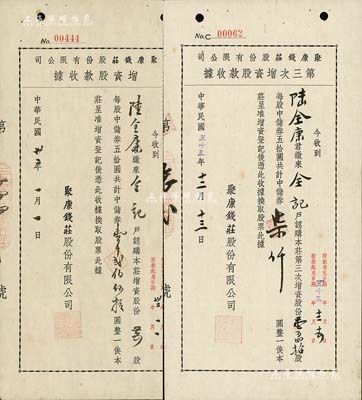 No.C 00062
聚康錢莊股份有限公司
第三次增資股款收據
今收到
陸金康君繳來 全記 戶認購本莊第三次增資股份 股
每股中儲券五拾圓共計中儲券 柒仟 圓整一俟本
莊呈准增資登記後憑此收據換取股票此據
聚康錢莊股份有限公司
中華民國三十三年十二月十三日
No. 00444
聚康錢莊股份有限公司
增資股款收據
今收到
陸金康君繳來 全記 戶認購本莊增資股份 股
每股中儲券五拾圓共計中儲券 圓整一俟本
莊呈准增資登記後憑此收據換取股票此據
聚康錢莊股份有限公司
中華民國 年一月一日
第
號